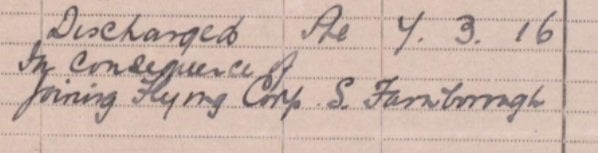 Discharged the 7. 3. 16
In consequence of
joining Flying Corp. S. Farnborough